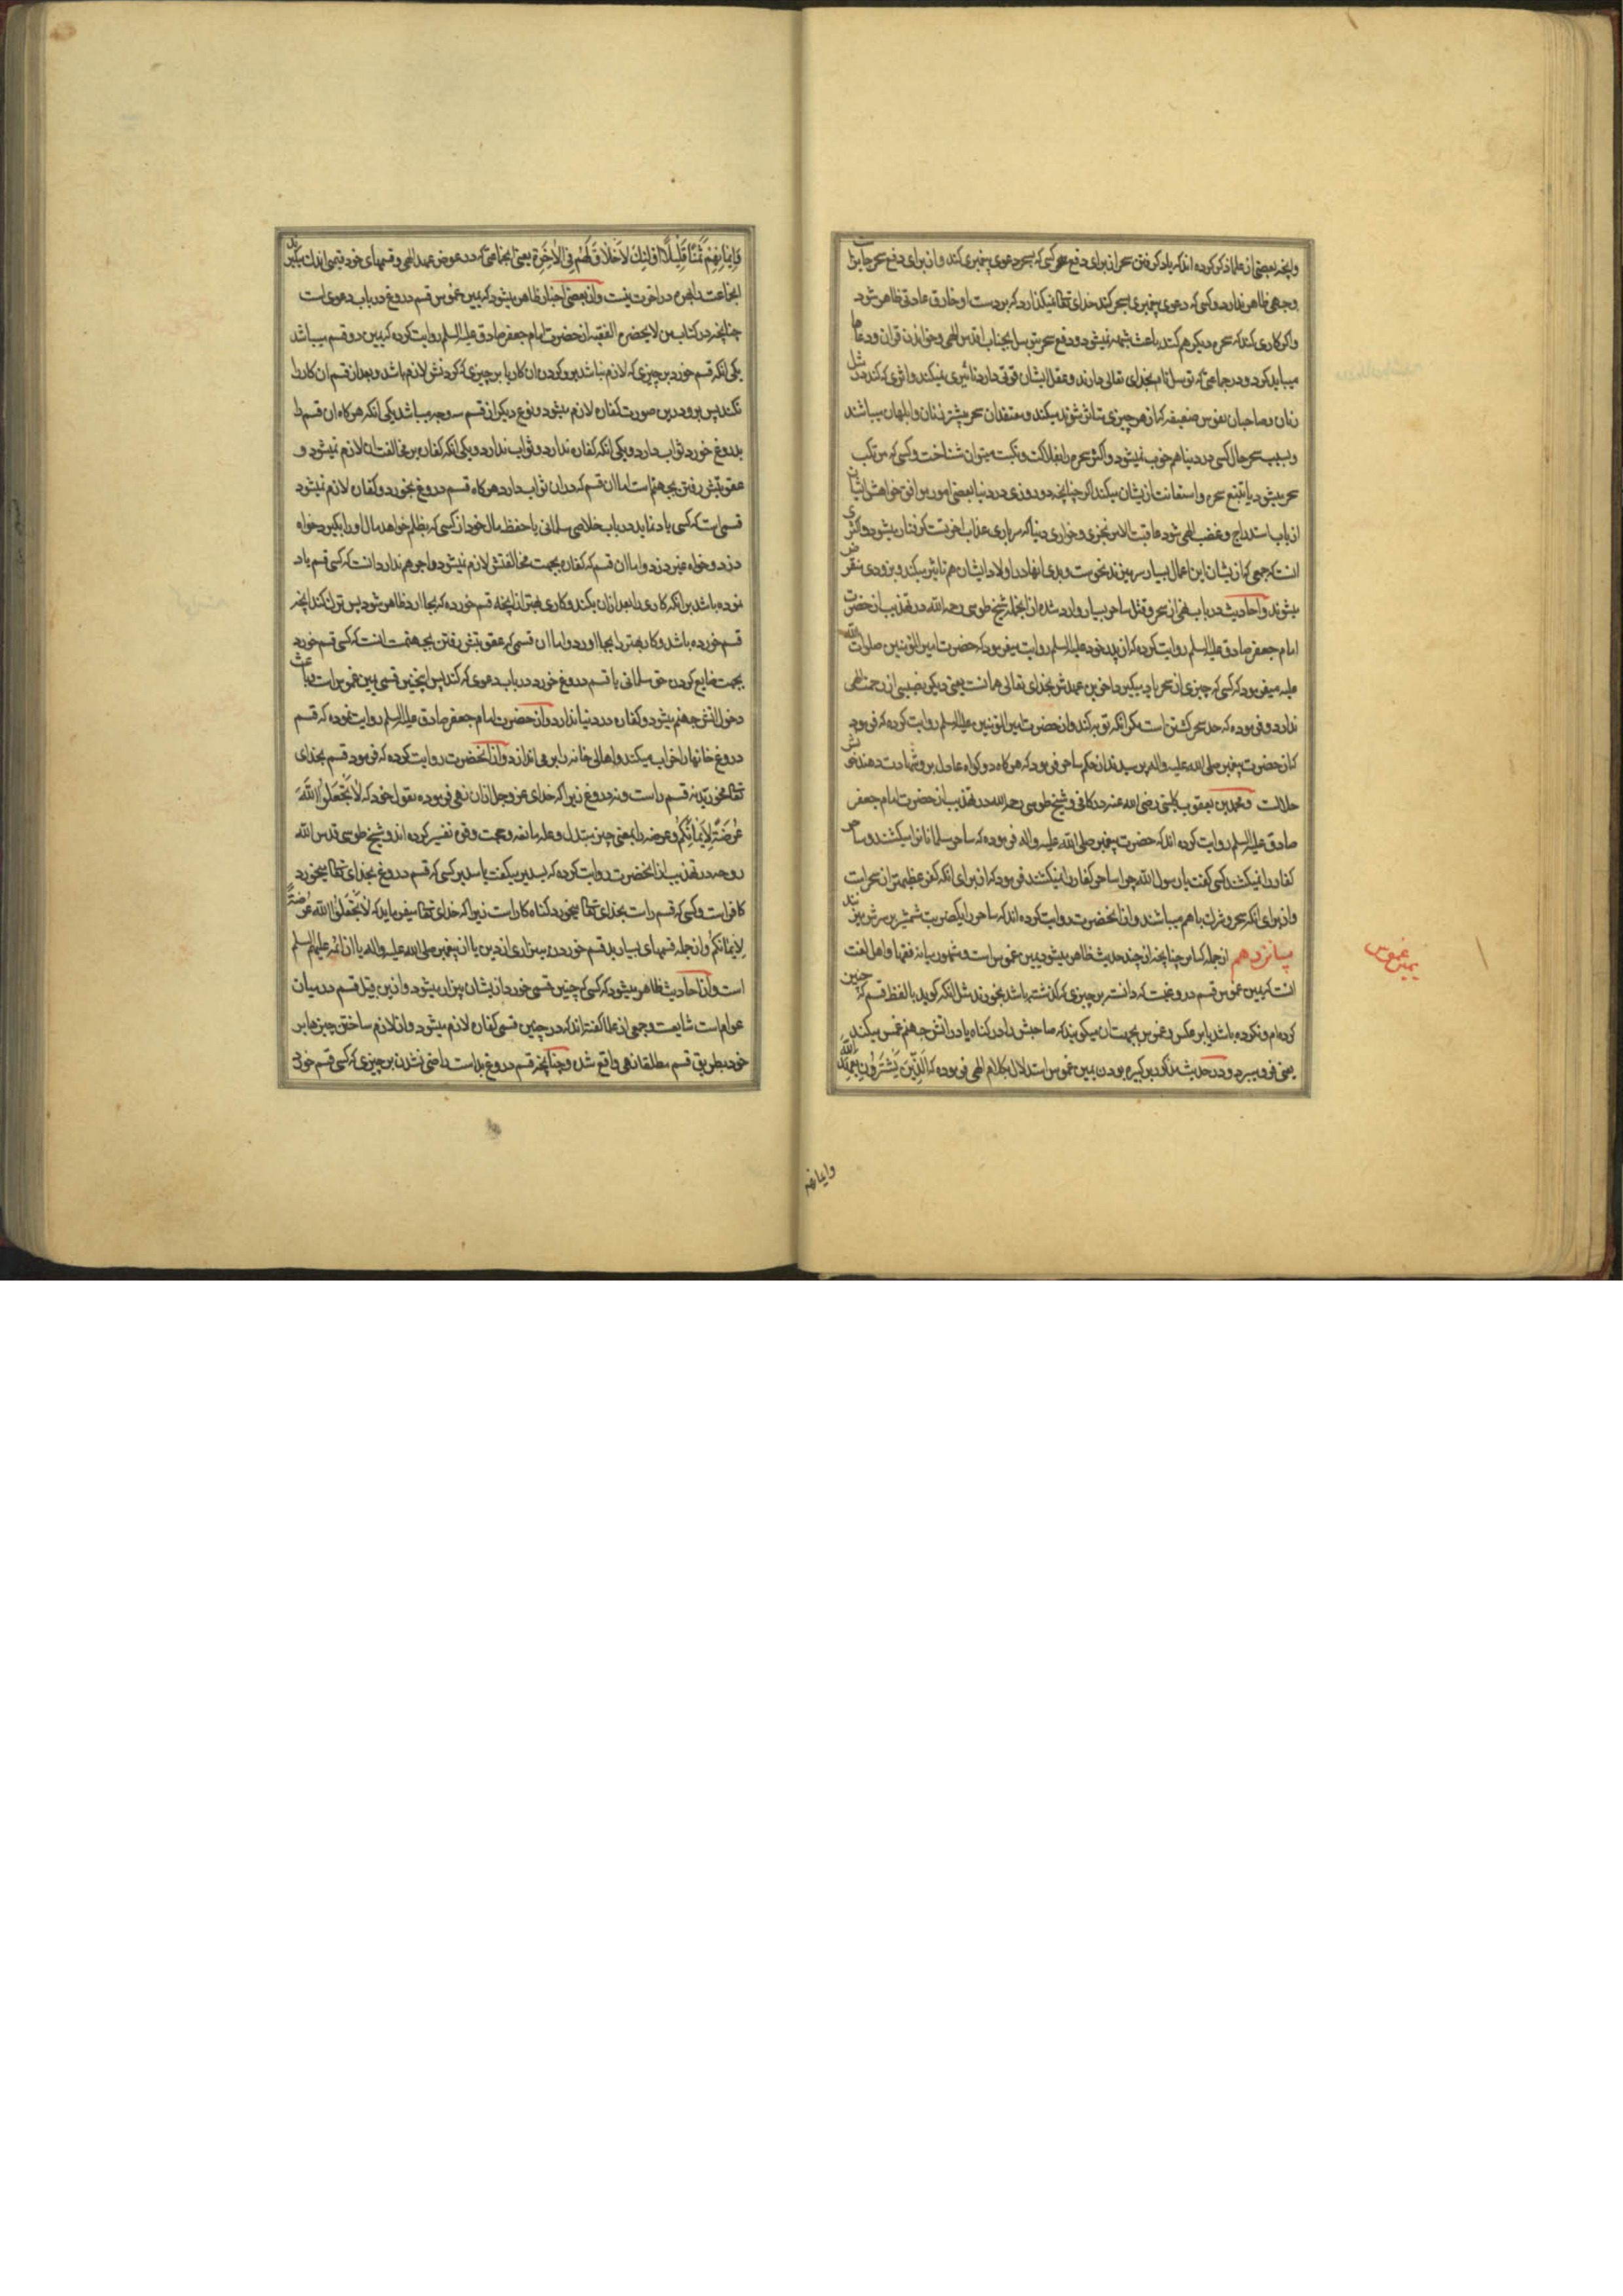 وانچه بعضی از علما ذکر کرده اند که یاد گرفتن سحر از برای دفع سحر کسی که بسحر دعوی پیغمبری کند و از برای دفع سحر جایز است
وجهی ظاهر ندارد و کسی که دعوی پیغمبری بسحر کند خدای تعالی نمیگذارد که بر دست او خارق عادتی ظاهر شود
واگر کاری کند که سحره دیگر هم کنند باعث شبهه نمیشود و دفع سحر بتوسل بجناب اقدس الهی و خواندن قران و دعاها
میباید کرد و در جماعتی که توسل تام بخدای تعالی دارند و عقل ایشان قوتی دارد تاثیری نمیکند و اثری که کند در مثل
زنان و صاحبان نفوس ضعیفه که از هر چیزی متاثر شوند میکند و معتقدان سحر بیشتر زنان و ابلهان میباشند
و بسبب سحر حال کسی در دنیا هم خوب نمیشود و اکثر سحره را بفلاکت و نکبت میتوان شناخت و کسی که مرتکب
سحر میشود یا تتبع سحره و استعانت ازیشان میکند اگر چنانچه دو روزی در دنیا بعضی امور موافق خواهش ایشان
از باب استدراج و غضب الهی شود عاقبت الامر بخزی و خواری دنیا که سرباری عذاب اخرتست گرفتار میشود و اکثری
انست که جمعی که ازیشان این اعمال بسیار سر میزند نحوست و بدی انها در اولاد ایشان هم تاثیر میکند و بزودی منقرض
میشوند و احادیث در باب نهی از سحر و قتل ساحر بسیار وارد شده از انجمله شیخ طوسی رحمه الله در تهذیب از حضرت
امام جعفر صادق علیه السلم روایت کرده که از پدر خود علیه السلم روایت میفرمود که حضرت امیر المؤمنین صلوات الله
علیه میفرمود که کسی که چیزی از سحر یاد بگیرد اخرین عهدش بخدای تعالی همانست یعنی دیگر نصیبی از رحمت الهی
ندارد و فرموده که حد سحر کشتن است مگر انکه توبه کند و از حضرت امیر المؤمنین علیه السلم روایت کرده که فرمود
که از حضرت پیغمبر صلی الله علیه واله پرسیدند از حکم ساحر فرمود که هر گاه دو گواه عادل برو شهادت دهند خونش
حلالست و محمد بن یعقوب کلینی رضی الله عنه در کافی و شیخ طوسی رحمه الله در تهذیب از حضرت امام جعفر
صادق علیه السلم روایت کرده اند که حضرت پیغمبر صلی الله علیه واله فرموده که ساحر مسلمانانرا میکشند و ساحر
کفار را نمیکشند کسی گفت یا رسول الله چرا ساحر کفار را نمیکشند فرمود که از برای انکه کفر عظیمتر از سحرست
و از برای انکه سحر و شرک با هم میباشند و از انحضرت روایت کرده اند که ساحر را یکضربت شمشیر بر سرش میزنند
پانزدهم از جمله کبایر چنانچه از چند حدیث ظاهر میشود یمین غموس است و مشهور میانه فقها و اهل لغت
انست که یمین غموس قسم دروغیست که دانسته بر چیزی که گذشته باشد بخورند مثل انکه گوید بالفظ قسم که چنین
کرده ام و نکرده باشد یا بر عکس و غموس بجهت ان میگویند که صاحبش را در گناه یا در اتش جهنم غمس میکند
یعنی فرو میبرد و در حدیث مذکور بر کبیره بودن یمین غموس استدلال بکلام الهی فرموده که الَّذِینَ یَشْتَرُونَ بِعَهْدِ اللَّهِ
یمین غموس
وایمانهم
وَاَیْمَانِهِمْ ثَمَنًا قَلِیلًا اُولئِکَ لَا خَلَاقَ لَهُمْ فِی الْآخِرَةِ یعنی انجماعتی که در عوض عهد الهی و قسمهای خود قیمتی اندک میگیرند
انجماعت را بهره در اخرت نیست و از بعضی اخبار ظاهر میشود که یمین غموس قسم دروغ در باب دعوی است
چنانچه در کتاب من لا یحضره الفقیه از حضرت امام جعفر صادق علیه السلم روایت کرده که یمین دو قسم میباشد
یکی انکه قسم خورد بر چیزی که لازم نباشد برو کردن ان کار یا بر چیزی که کردنش لازم باشد و بعد از قسم ان کار را
نکند پس برو درین صورت کفاره لازم میشود و نوع دیگر از قسم سه وجه میباشد یکی انکه هر گاه ان قسم را
بدروغ خورد ثواب دارد و یکی انکه کفاره ندارد و ثواب ندارد و یکی انکه کفاره بر مخالفت ان لازم نمیشود و
عقوبتش رفتن بجهنم است اما ان قسم که در ان ثواب دارد هر گاه قسم دروغ بخورد و کفاره لازم نمیشود
قسمی است که کسی یاد نماید در باب خلاصی مسلمانی یا حفظ مال خود از کسی که بظلم خواهد مال او را بگیرد خواه
دزد و خواه غیر دزد و اما ان قسم که کفاره بجهت مخالفتش لازم نمیشود و اجر هم ندارد انست که کسی قسم یاد
نموده باشد بر انکه کاری را بعد ازان بکند و کاری بهتر از انچه قسم خورده که بجا ارد ظاهر شود پس ترک کند انچه
قسم خورده باشد و کار بهتر را بجا اورد و اما ان قسمی که عقوبتش رفتن بجهنمست انست که کسی قسم خورد
بجهت ضایع کردن حق مسلمانی یا قسم دروغ خورد در باب دعوی که کند پس اینچنین قسمی یمین غموس است و باعث
دخول اتش جهنم میشود و کفاره در دنیا ندارد و از حضرت امام جعفر صادق علیه السلم روایت نموده که قسم
دروغ خانها را خراب میکند و اهالی خانه را بر می اندازد و از انحضرت روایت کرده که فرمود قسم بخدای
تعالی مخورید نه قسم راست و نه دروغ زیرا که خدای عز و جل ازان نهی فرموده بقول خود که لَا تَجْعَلُوا اللَّهَ
عُرْضَةً لِاَیْمَانِکُمْ و عرضه را بمعنی چیز مبتذل و علت مانعه و حجت و قوه تفسیر کرده اند و شیخ طوسی قدس الله
روحه در تهذیب از انحضرت روایت کرده که بسدیر میگفت یا سدیر کسی که قسم دروغ بخدای تعالی میخورد
کافر است و کسی که قسم راست بخدای تعالی میخورد گناه کار است زیرا که خدای تعالی میفرماید که لَا تَجْعَلُوا اللَّهَ عُرْضَةً
لِاَیْمَانِکُمْ و از جمله قسمهای بسیار بد قسم خوردن به بیزاری از دین یا از پیغمبر صلی الله علیه واله یا از ائمه علیهم السلم
است و از احادیث ظاهر میشود که کسی که چنین قسمی خورد ازیشان بیزار میشود و ازین قبیل قسم در میان
عوام است شایعست و جمعی از علما گفته اند که در چنین قسمی کفاره لازم میشود و از لازم ساختن چیزها بر
خود بطریق قسم مطلقا نهی واقع شده و چنانچه قسم دروغ بد است راضی نشدن بر چیزی که کسی قسم خورد